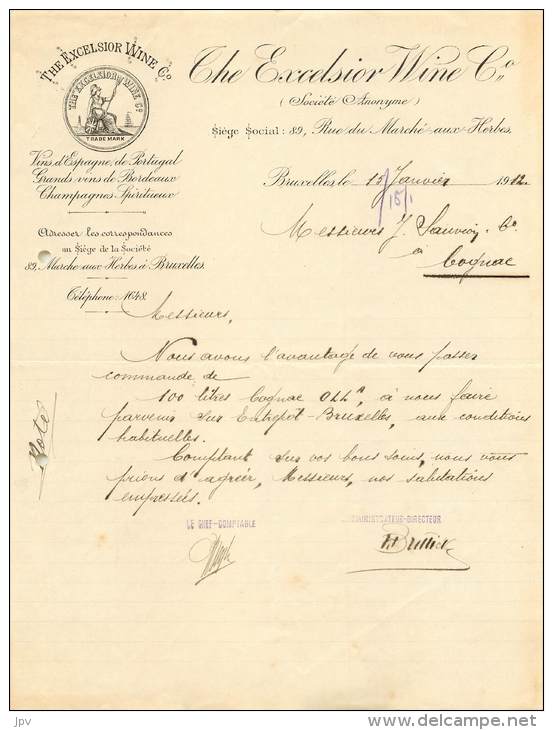 THE EXCELSIOR WINE Co.
THE EXCELSIOR WINE Co.
TRADE MARK
The Excelsior Wine Co.
(Société Anonyme)
Siège Social: 89, Rue du Marché-aux-Herbes.
Vins d'Espagne, de Portugal
Grands vins de Bordeaux
Champagnes, Spiritueux
Bruxelles, le 15 Janvier 1912.
15/1
Messieurs J. & Co
à
Cognac
Adresser les correspondances
au Siège de la Société
89, Marché-aux-Herbes à Bruxelles.
Téléphone: 1648.
Messieurs,
Nous avons l'avantage de vous passer
commande de
100 litres Cognac à nous faire
parvenir sur Entrepôt-Bruxelles, aux conditions
habituelles.
Comptant sur vos bons soins, nous vous
prions d'agréer, Messieurs, nos salutations
empressées.
Noté
LE CHEF-COMPTABLE
ADMINISTRATEUR-DIRECTEUR
JPV
delcampe.net